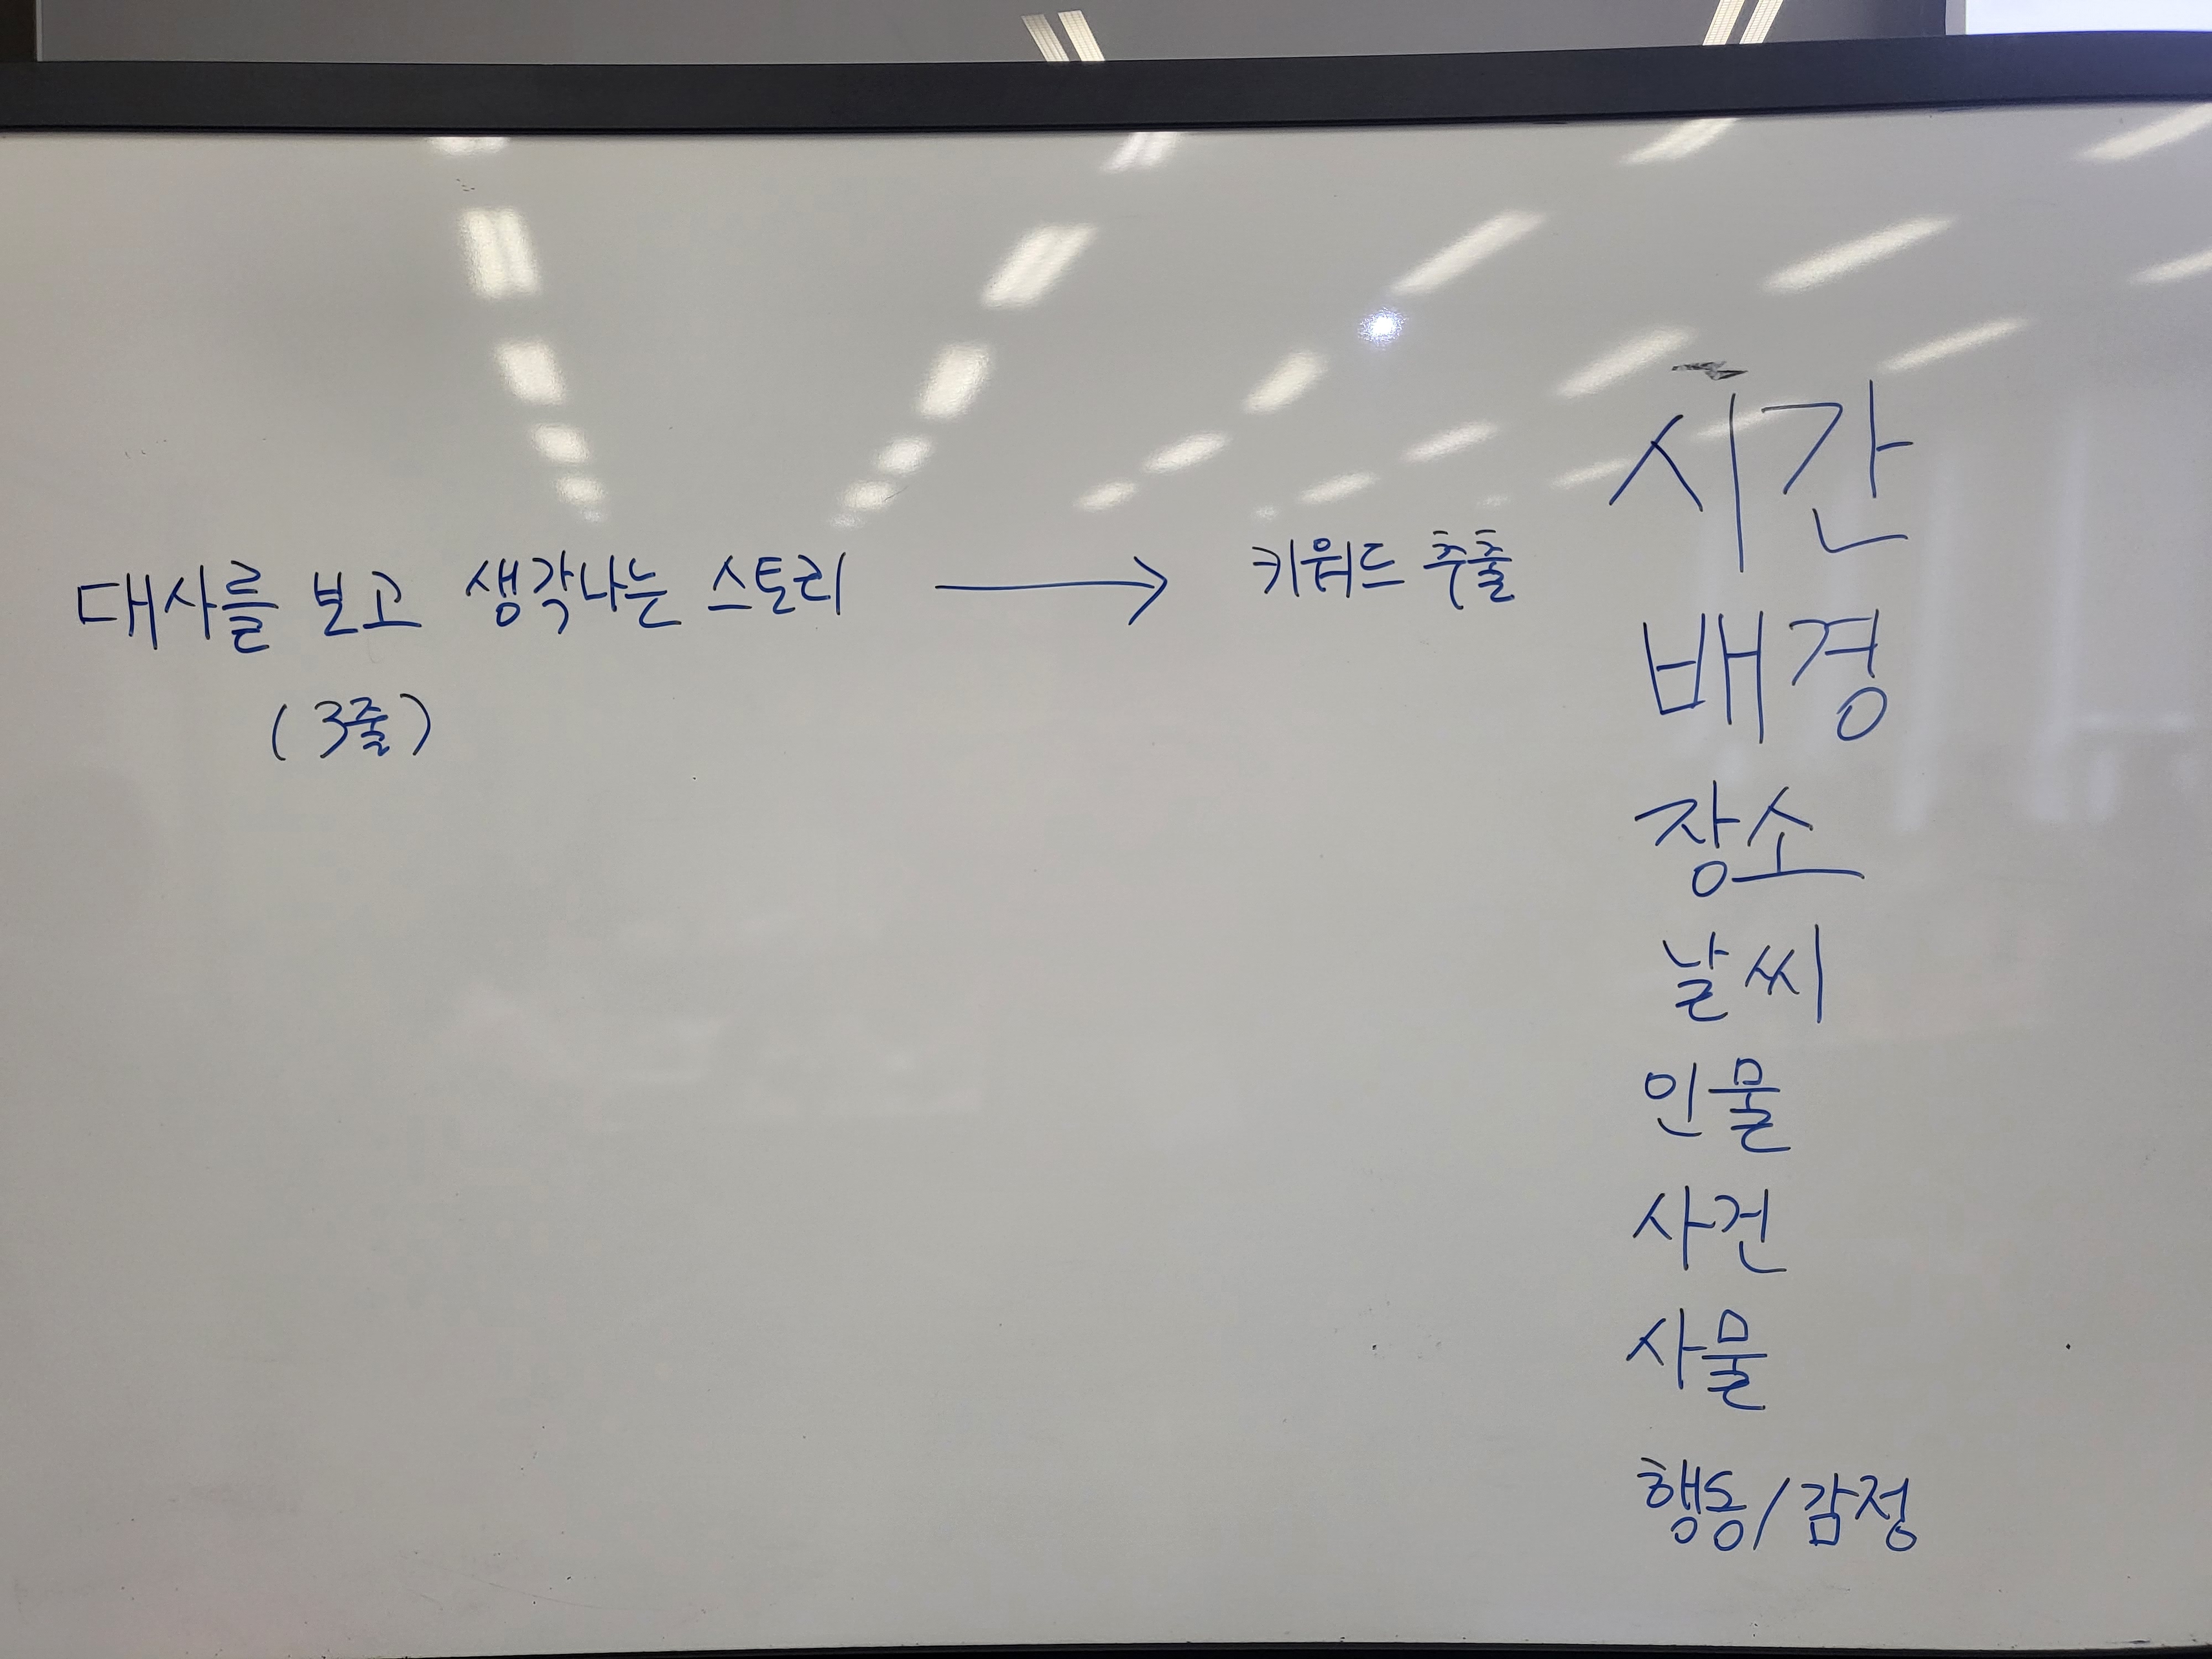 대사를 보고 생각나는 스토리 → 키워드 추출
(3줄)
시간
배경
장소
날씨
인물
사건
사물
행동/감정